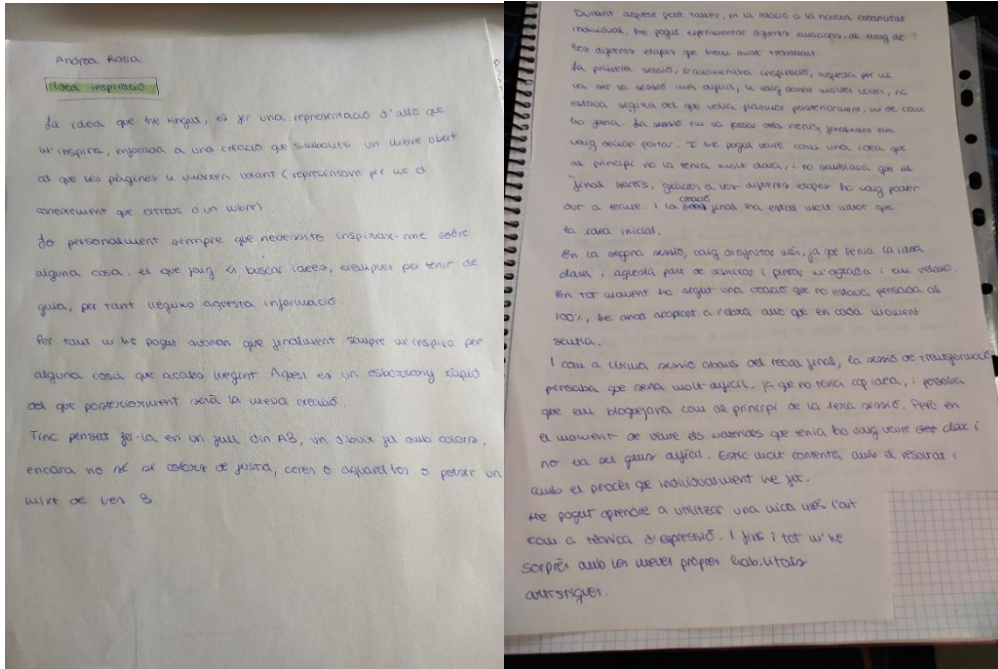 Andrea Rosa
Idea inspiració
La idea que he tingut, és fer una representació d'allò que
m'inspira, enfocada a una creació que simbolitzi un llibre obert
al que les pàgines li marxen volant (representant per mi el
coneixement que extraus d'un llibre)
Jo personalment sempre que necessito inspirar-me sobre
alguna cosa, el que faig és buscar idees, exemples per tenir de
guia, per tant llegeixo aquesta informació.
Per tant m'he pogut adonar que finalment sempre m'inspiro per
alguna cosa que acabo llegint. Aquest es un esborrany ràpid
del que posteriorment serà la meva creació.
Tinc pensat fer-la en un full din A3, un dibuix fet amb colors,
encara no sé si colors de fusta, ceres o aquarel·les o potser un
mixt de les 3.
Durant aquest petit taller, en la relació a la nostra creativitat
individual, he pogut experimentar diferents emocions, al llarg de
les diferents etapes que hem anat realitzant.
La primera sessió, s'anomenava inspiració, aquesta per mi
va ser la sessió més difícil, li vaig donar moltes voltes, no
estava segura del que volia plasmar posteriorment, ni de com
ho faria. La sessió em va posar dels nervis, finalment em
vaig deixar portar. I he pogut veure com una idea que
al principi no la tenia molt clara, i no semblava que al
final sortís, gràcies a les diferents etapes ho vaig poder
dur a terme. I la creació final ha estat molt millor que
la idea inicial.
En la segona sessió, vaig disfrutar més, ja que tenia la idea
clara i aquesta part de dibuixar i pintar m'agrada i em relaxa.
En tot moment ha sigut una creació que no estava pensada al
100%, he anat acoplant a relació amb que en cada moment
sentia.
I com a última sessió abans del recull final, la sessió de transformació
pensaba que seria molt difícil, ja que no tenia cap idea, i pensava
que em bloquejaria com al principi de la 1era sessió. Però en
el moment de veure els materials que tenia ho vaig veure clar i
no va ser gens difícil. Estic molt contenta amb el resultat i
amb el procès que individualment he fet.
He pogut aprendre a utilitzar una mica més l'art
com a tècnica d'expressió. I fins i tot m'he
sorprès amb les meves pròpies habilitats
artístiques.